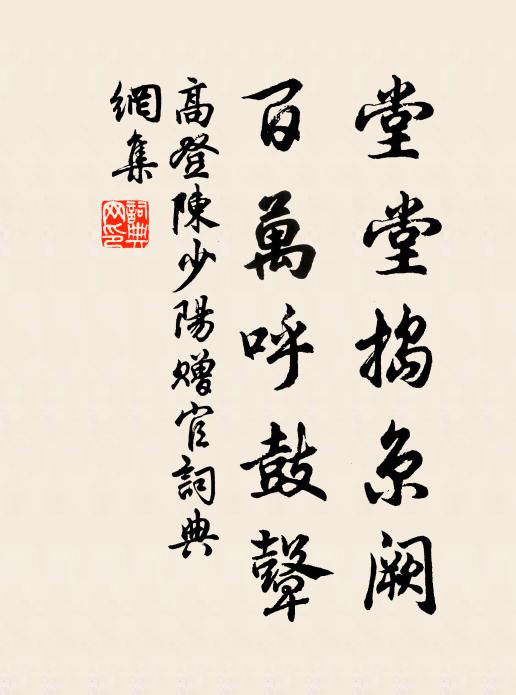 堂堂搗京闕
百萬呼鼓鼙
高登陳少陽贈官詞典
網集
詞典網印